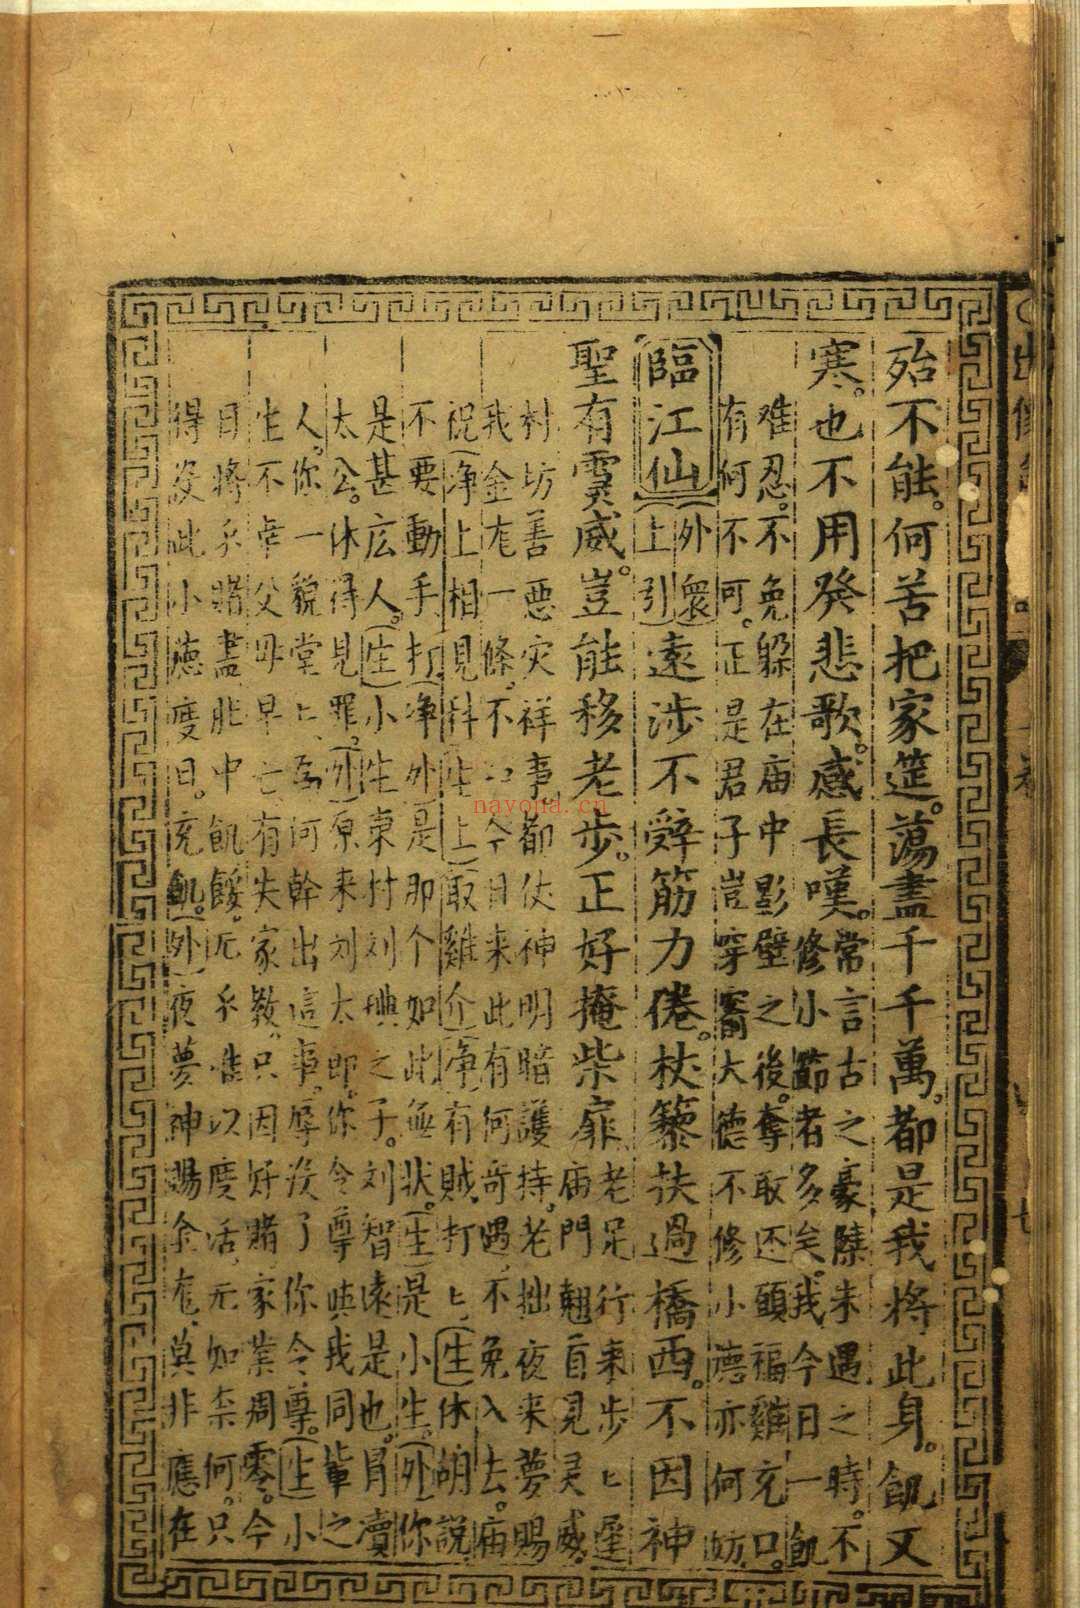 殆不能。何苦把家筵。蕩盡千千萬。都是我將此身。飢又
寒。也不用発悲歌。感長嘆。常言古之豪傑未遇之時。不
修小節者多矣。我今日一飢
难忍。不免躲在庙中影壁之後。奪取还頭福雞充口。
有何不可。正是君子岂穿窬大德不修小德亦何妨
臨江仙
外衆
上引
遠涉不辤筋力倦。杖藜扶過橋西。不因神
聖有霊威。豈能移老步。正好掩柴扉
老足行来步匕遲
庙門翹首見灵威。
村坊善惡灾祥事。都仗神明暗護持。老拙夜来夢賜
我金尨一條。不
今日来此有何奇遇。不免入去庙
祝净上相見科生上取雞介净有賊。打匕。生休胡說。
不要動手打。净外是那个如此無狀。生是小生。外你
是甚広人。生小生東村刘
之子。刘智遠是也。冒瀆
太公。休得見罪。外原来刘太
你令尊
我同輩之
人。你一貌堂匕。為何幹出這事。辱没了你令尊。生小
生不幸父母早亡有失家教。只因好賭。家業周零。今
日將
賭盡肚中飢餒。无
以度活。无如柰何。只
得没此小德度日。充飢。外夜夢神賜金尨。莫非應在
nayona.cn